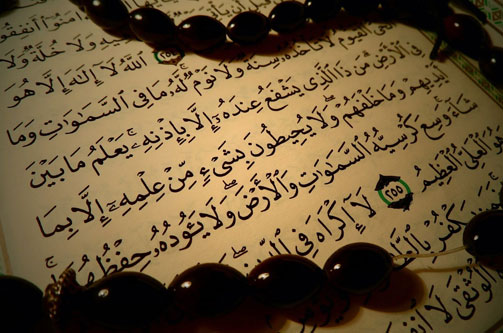 ءَامَنُوٓا۟ أَنفِقُوا۟
وَلَا خُلَّةٌ وَلَا
٢٥٤ ٱللَّهُ لَآ إِلَٰهَ إِلَّا هُوَ
ٱلْقَيُّومُ لَا تَأْخُذُهُۥ سِنَةٌ وَلَا نَوْمٌ لَّهُۥ مَا فِى ٱلسَّمَٰوَٰتِ وَمَا
فِى ٱلْأَرْضِ مَن ذَا ٱلَّذِى يَشْفَعُ عِندَهُۥٓ إِلَّا بِإِذْنِهِۦ يَعْلَمُ مَا بَيْنَ
أَيْدِيهِمْ وَمَا خَلْفَهُمْ وَلَا يُحِيطُونَ بِشَىْءٍ مِّنْ عِلْمِهِۦٓ إِلَّا بِمَا
شَآءَ وَسِعَ كُرْسِيُّهُ ٱلسَّمَٰوَٰتِ وَٱلْأَرْضَ وَلَا يَـُٔودُهُۥ حِفْظُهُمَا
وَهُوَ ٱلْعَلِىُّ ٱلْعَظِيمُ ٢٥٥ لَآ إِكْرَاهَ فِى
يَكْفُرْ
ٱلْوُثْقَىٰ لَا